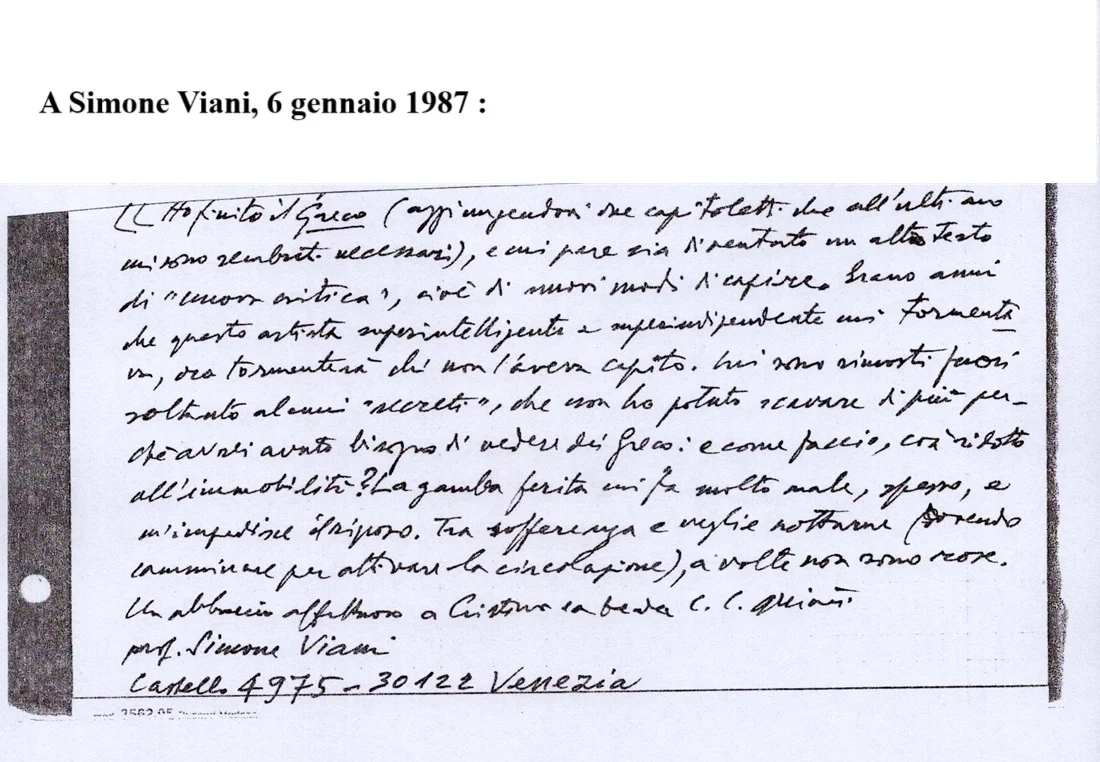 A Simone Viani, 6 gennaio 1987 :
Ho finito il Greco (aggiungendovi due capitoletti che all'ultimo
mi sono sembrati necessari), e mi pare sia diventato un altro testo
di "nuova critica", cioè di nuovi modi di capire. Erano anni
che questo artista superintelligente e superindipendente mi tormenta_
va, ora tormenterà chi non l'aveva capito. Mi sono rimasti fuori
soltanto alcuni "secreti", che non ho potuto scavare di più per_
chè avrei avuto bisogno di vedere dei Greco: e come faccio, così ridotto
all'immobilità? La gamba ferita mi fa molto male, spesso, e
m'impedisce il riposo. Tra sofferenza e veglie notturne (dovendo
camminare per attivare la circolazione), a volte non sono rose.
Un abbraccio affettuoso a Cristina e a C. C.
prof. Simone Viani
Castello 4975 - 30122 Venezia